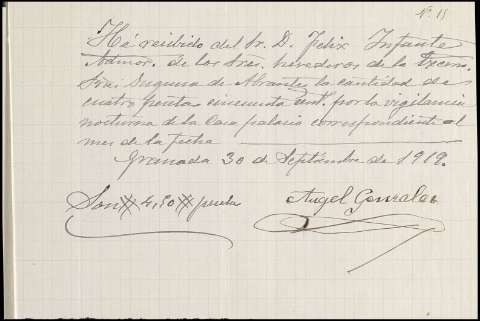 Nº 18
He recibido del Sr. D. Felix Infante
Admor. de los Sres. herederos de la Excma.
Sra. Duquesa de Abrantes la cantidad de
cuatro pesetas cincuenta cent. por la vigilancia
nocturna de la Casa palacio correspondiente al
mes de la fecha
Granada 30 de Septiembre de 1918.
Son # 4,50 # pesetas
Angel Gonzalez